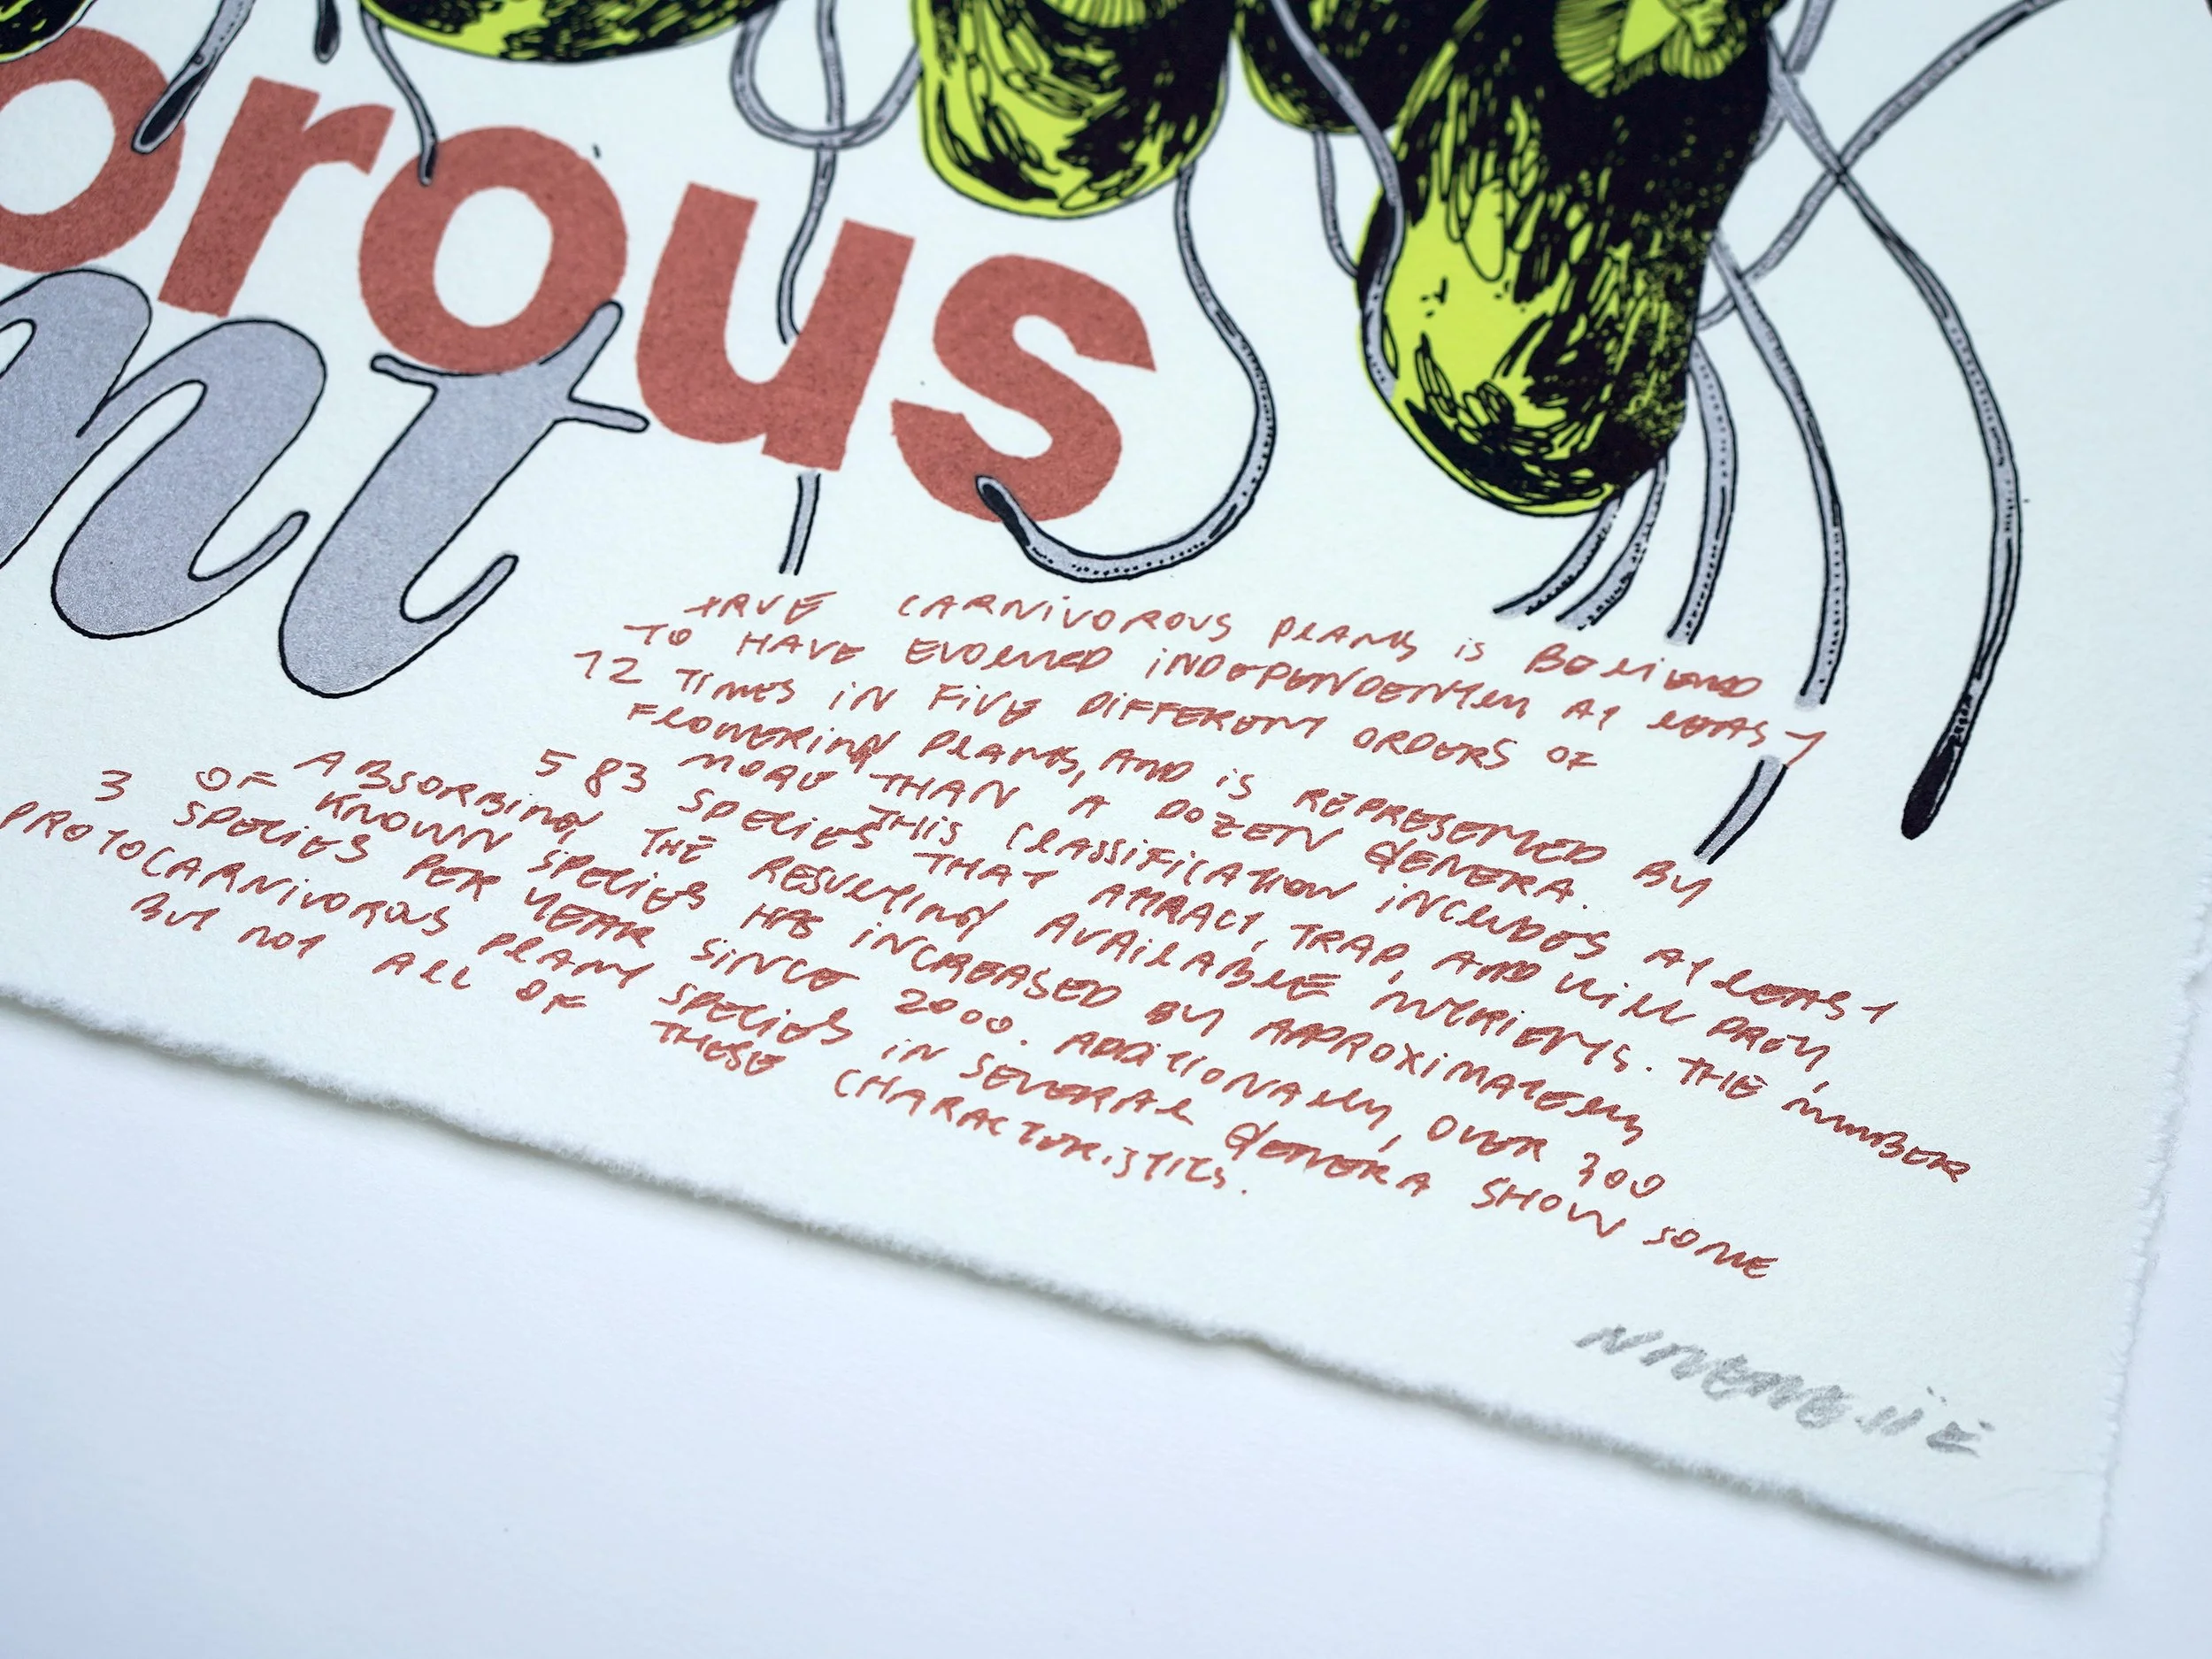 orous
nt
TRUE CARNIVOROUS PLANTS IS BELIEVED
TO HAVE EVOLVED INDEPENDENTLY AT LEAST
12 TIMES IN FIVE DIFFERENT ORDERS OF
FLOWERING PLANTS, AND IS REPRESENTED BY
MORE THAN A DOZEN GENERA.
THIS CLASSIFICATION INCLUDES AT LEAST
583 SPECIES THAT ATTRACT, TRAP, AND KILL PREY,
ABSORBING THE RESULTING AVAILABLE NUTRIENTS. THE NUMBER
OF KNOWN SPECIES HAS INCREASED BY APPROXIMATELY
3 SPECIES PER YEAR SINCE 2000. ADDITIONALLY, OVER 300
PROTOCARNIVOROUS PLANT SPECIES IN SEVERAL GENERA SHOW SOME
BUT NOT ALL OF THESE CHARACTERISTICS.